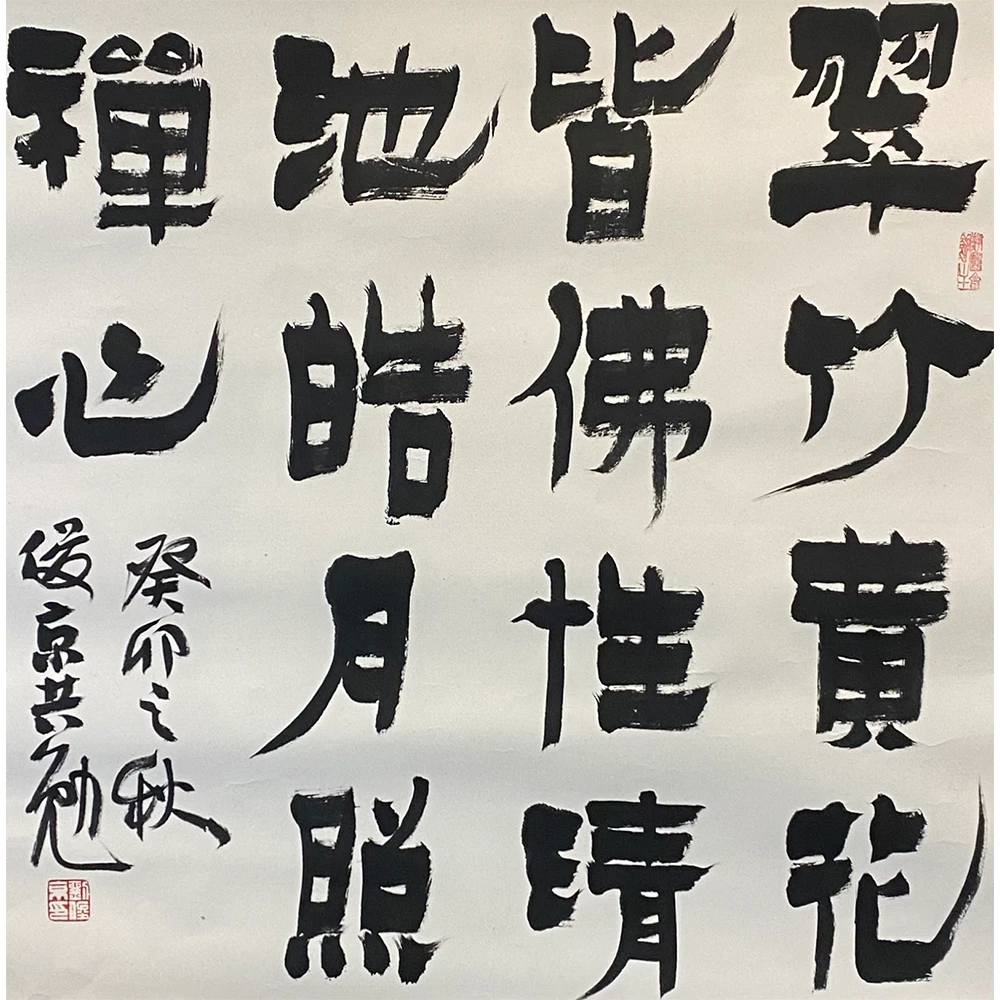 翠竹黄花
皆佛性清
池皓月照
禪心
癸卯之秋
俊京共勉